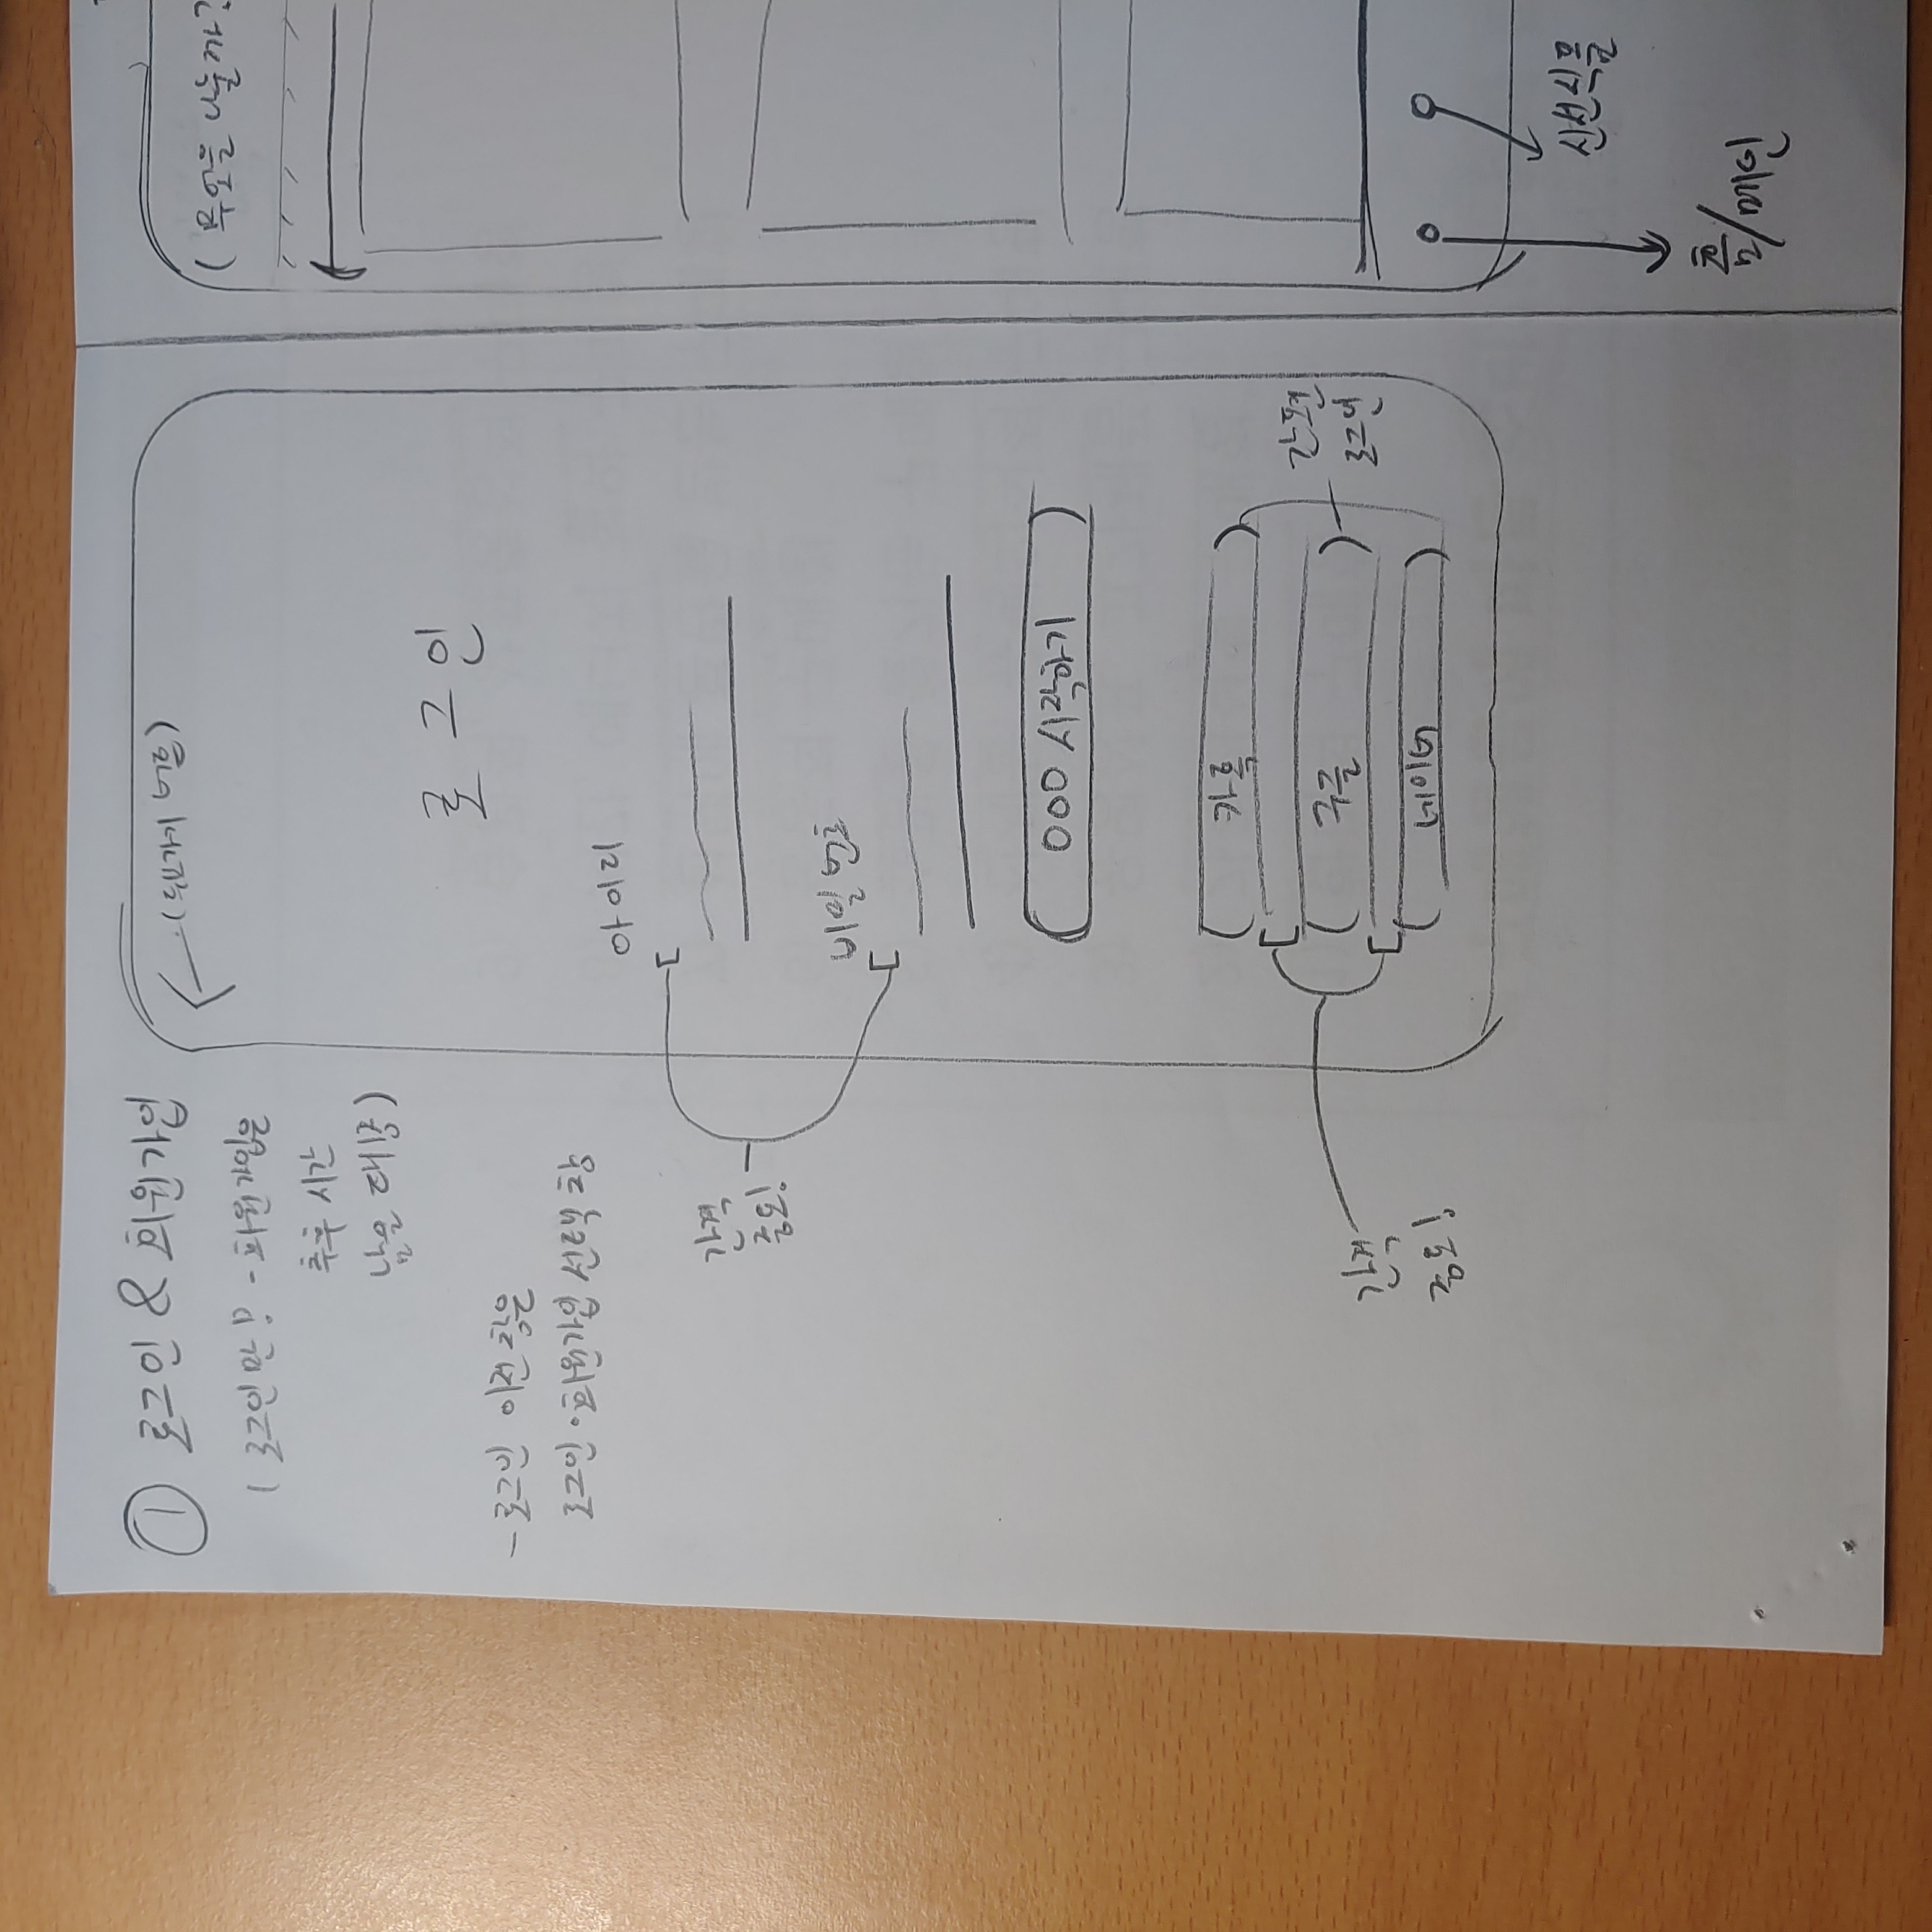 ① 로그인 & 회원가입
( 로그인만!? - 회원가입은
추후 시간
남을 때!)
- 로그인 이전 창은
로그인·회원가입 선택 창
(뒤로가기 버튼)
로그인
아이디
간격
중요!
비밀번호
OOO 시작하기
카톡
구글
네이버
간편
로그인
간격
중요!
( 무엇을 나눌까?
신선식물
홈/메인